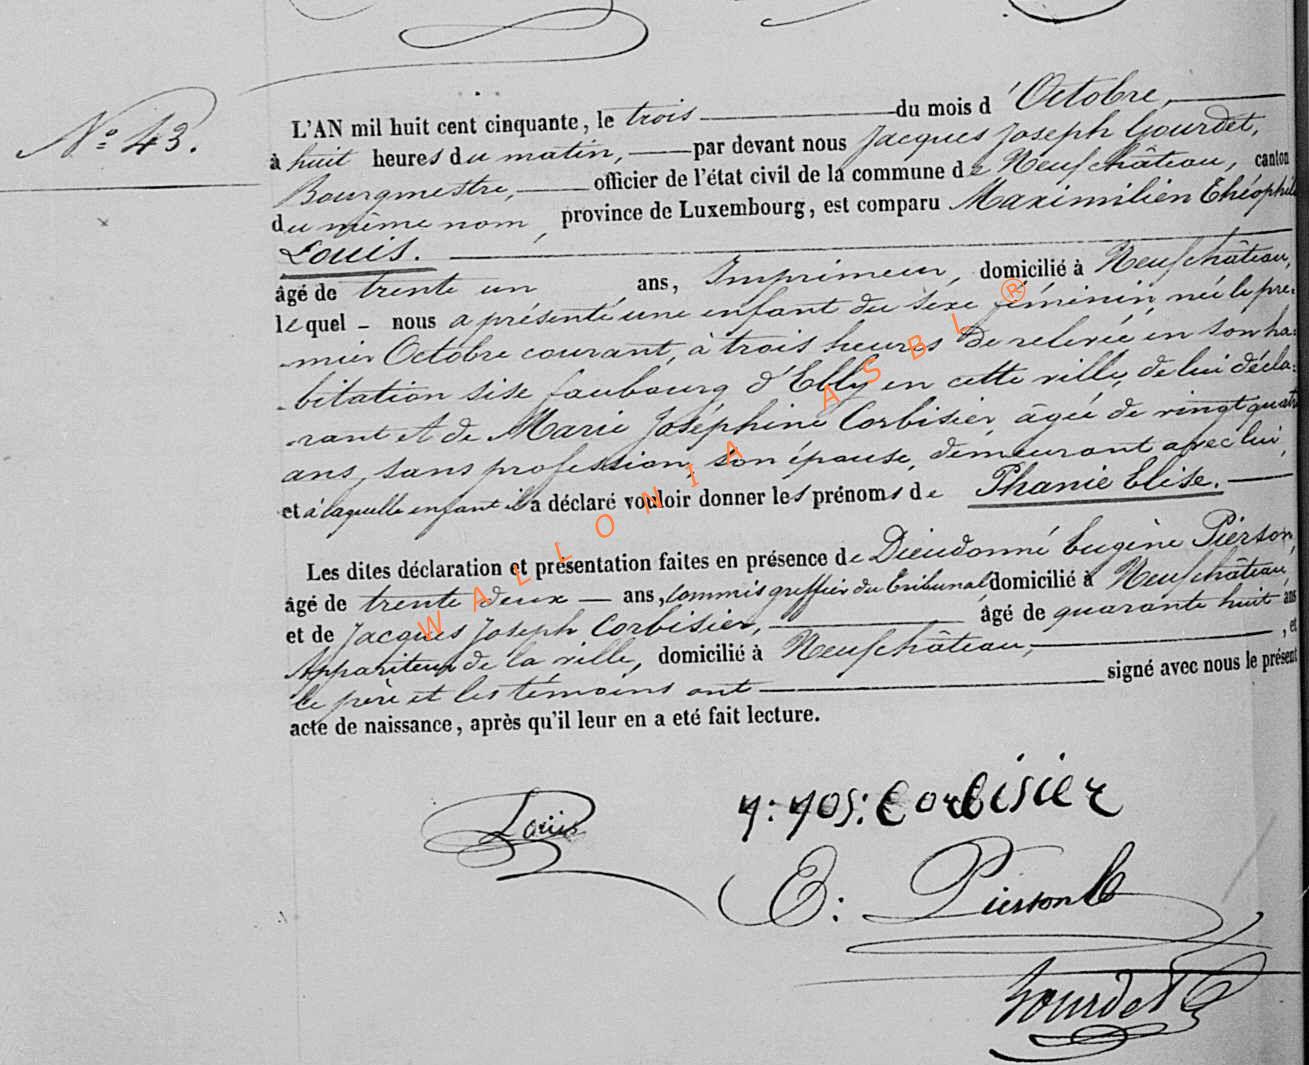 N.º 43.
L'AN mil huit cent cinquante, le trois du mois d'Octobre,
à huit heures du matin, par devant nous Jacques Joseph Gourdet,
Bourgmestre, officier de l'état civil de la commune de Neufchâteau, canton
du même nom, province de Luxembourg, est comparu Maximilien Théophile
Louis.
âgé de trente un ans, Imprimeur, domicilié à Neufchâteau,
lequel - nous a présenté une enfant du sexe féminin, née le pre-
mier Octobre courant, à trois heures de relevée en son ha-
bitation sise faubourg d'Elly en cette ville, de lui décla-
rant et de Marie Joséphine Corbisier, âgée de vingt quatre
ans, sans profession, son épouse, demeurant avec lui,
et à laquelle enfant il a déclaré vouloir donner les prénoms de Phanie Elise.
Les dites déclaration et présentation faites en présence de Dieudonné Eugène Pierson,
âgé de trente deux ans, Commis greffier du tribunal, domicilié à Neufchâteau,
et de Jacques Joseph Corbisier, âgé de quarante huit ans
Appariteur de la ville, domicilié à Neufchâteau, , et
le père et les témoins ont signé avec nous le présent
acte de naissance, après qu'il leur en a eté fait lecture.
Louis
J: JOS: Corbisier
E: Pierson
Gourdet
WALLONIA ASBL ®